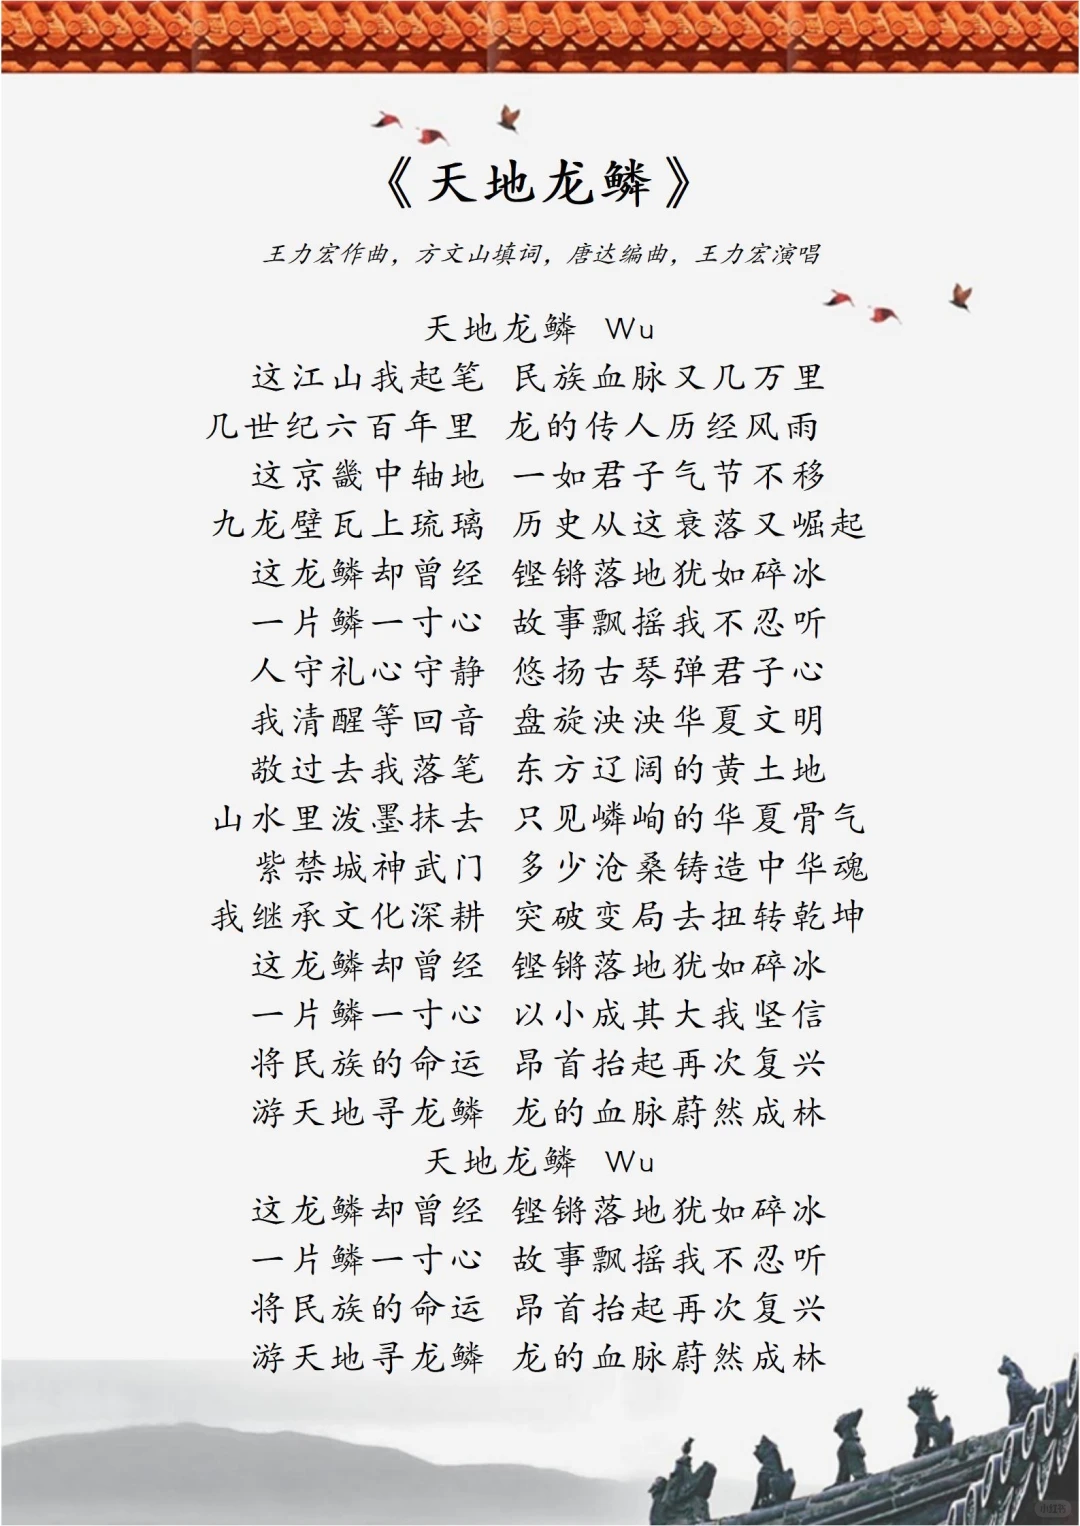 《天地龙鳞》
王力宏作曲，方文山填词，唐达编曲，王力宏演唱
天地龙鳞 Wu
这江山我起笔 民族血脉又几万里
几世纪六百年里 龙的传人历经风雨
这京畿中轴地 一如君子气节不移
九龙壁瓦上琉璃 历史从这衰落又崛起
这龙鳞却曾经 铿锵落地犹如碎冰
一片鳞一寸心 故事飘摇我不忍听
人守礼心守静 悠扬古琴弹君子心
我清醒等回音 盘旋泱泱华夏文明
敬过去我落笔 东方辽阔的黄土地
山水里泼墨抹去 只见嶙峋的华夏骨气
紫禁城神武门 多少沧桑铸造中华魂
我继承文化深耕 突破变局去扭转乾坤
这龙鳞却曾经 铿锵落地犹如碎冰
一片鳞一寸心 以小成其大我坚信
将民族的命运 昂首抬起再次复兴
游天地寻龙鳞 龙的血脉蔚然成林
天地龙鳞 Wu
这龙鳞却曾经 铿锵落地犹如碎冰
一片鳞一寸心 故事飘摇我不忍听
将民族的命运 昂首抬起再次复兴
游天地寻龙鳞 龙的血脉蔚然成林
小红书